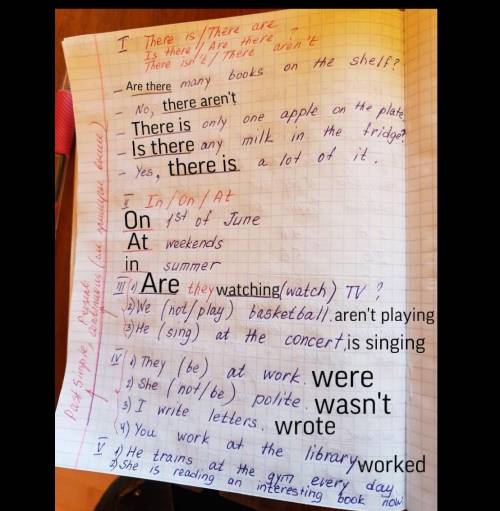 I There is / There are
Is there / Are there ?
There isn't / There aren't
– Are there many books on the shelf?
– No, there aren't
– There is only one apple on the plate.
– Is there any milk in the fridge?
– Yes, there is a lot of it.
II In / On / At
On 1st of June
At weekends
in summer
III 1) Are they watching (watch) TV ?
2) We (not/play) basketball. aren't playing
3) He (sing) at the concert, is singing
IV 1) They (be) at work. were
2) She (not/be) polite. wasn't
3) I write letters. wrote
4) You work at the library worked
V 1) He trains at the gym every day
2) She is reading an interesting book now
Past Simple,